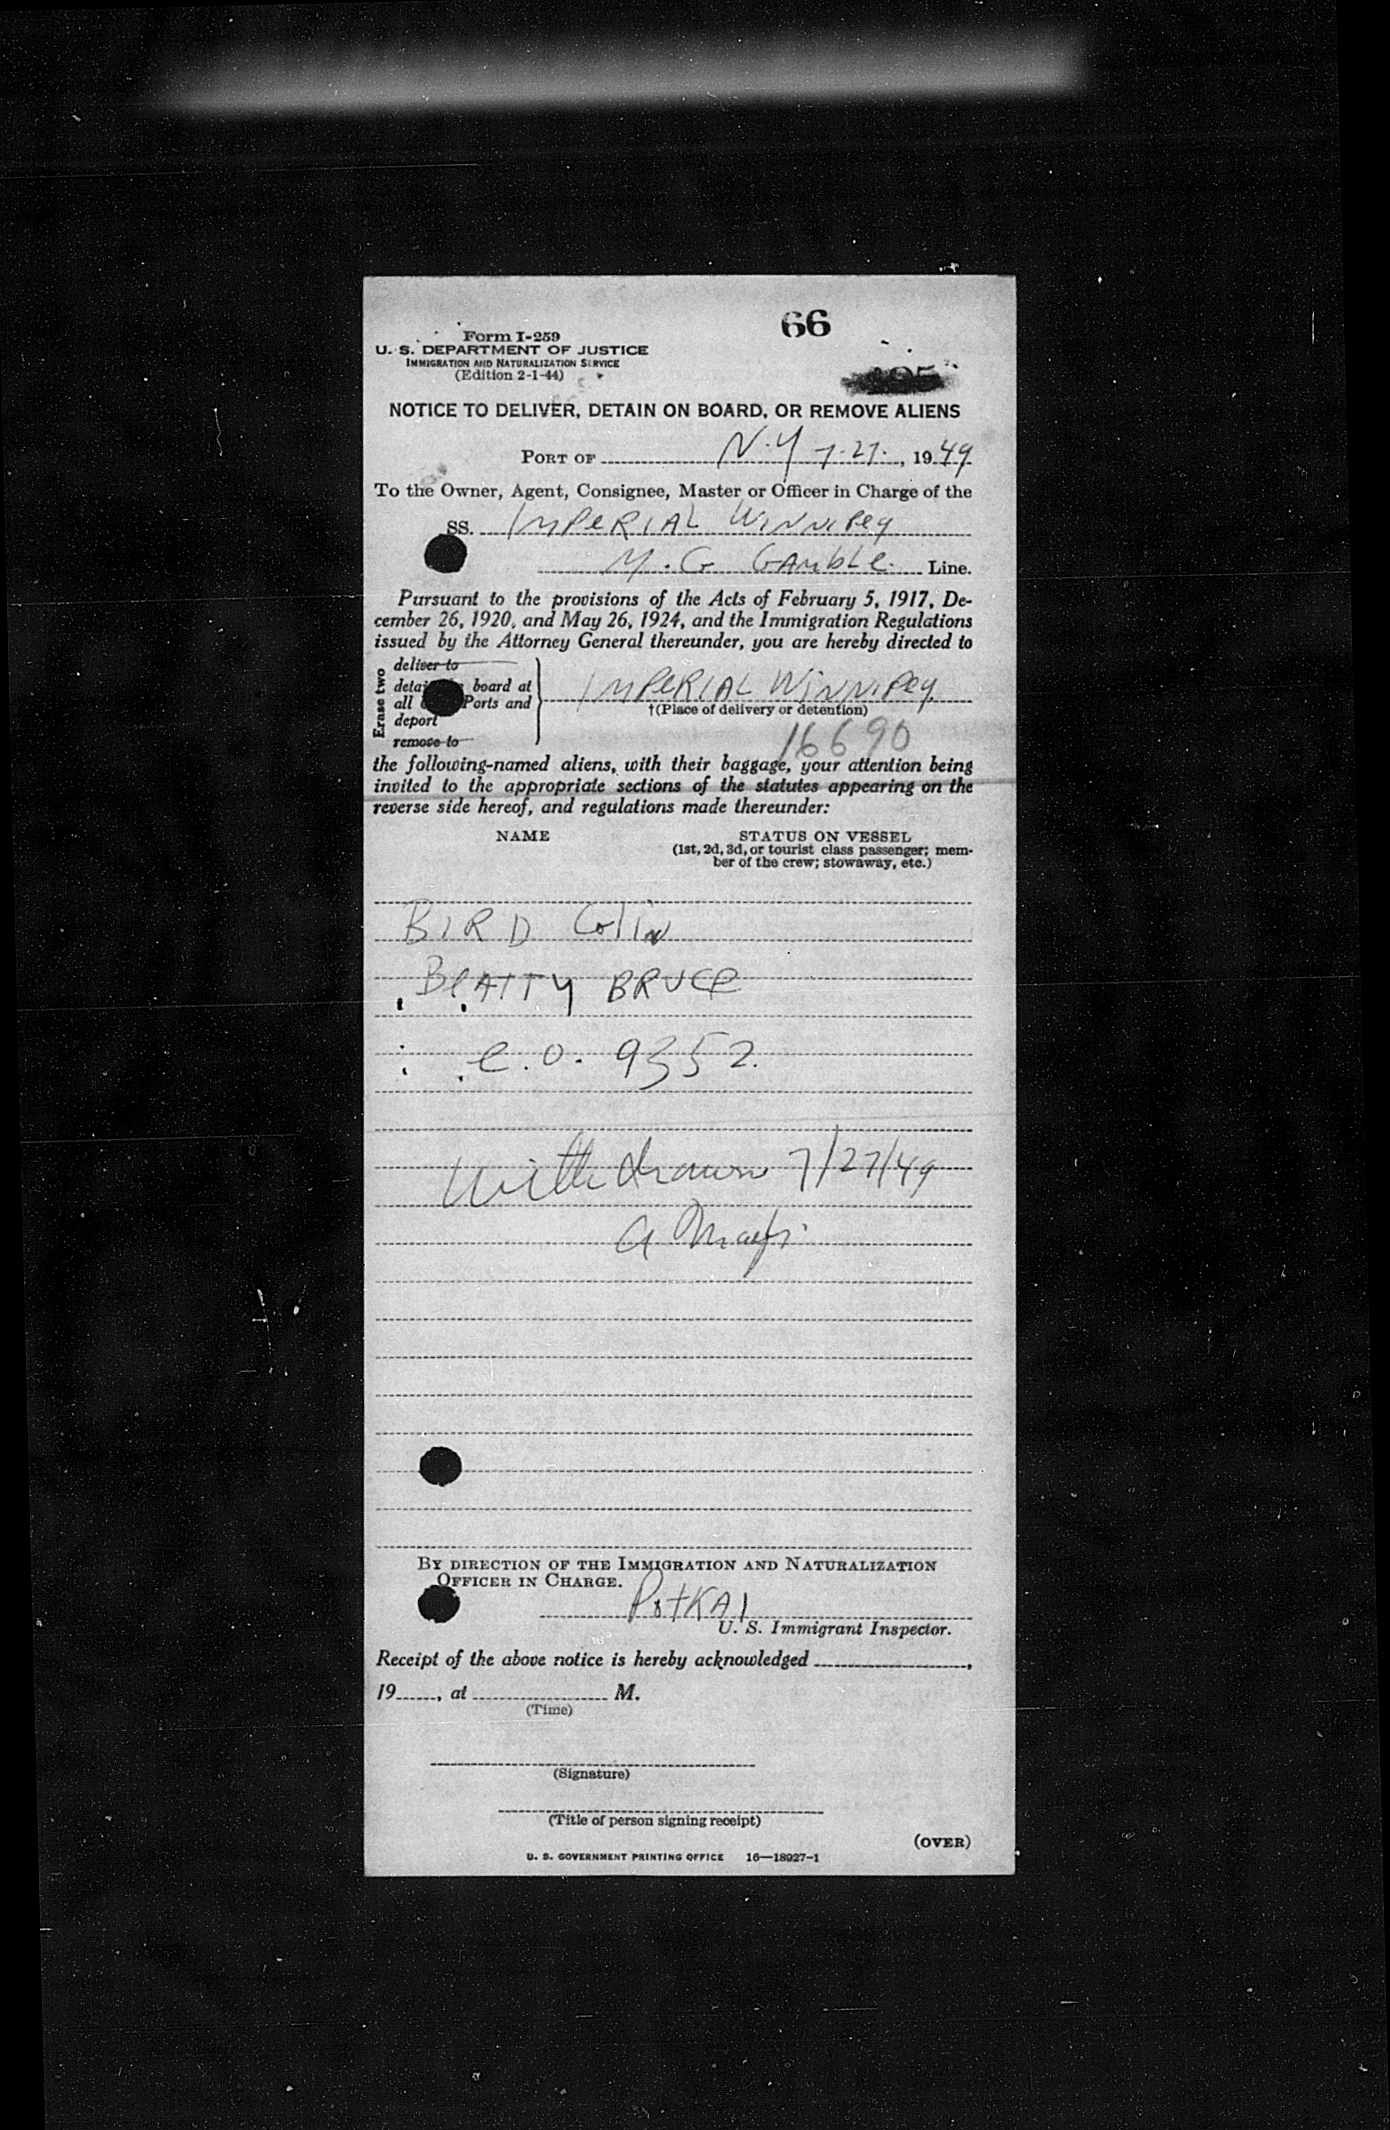 66
Form I-259
U. S. DEPARTMENT OF JUSTICE
IMMIGRATION AND NATURALIZATION SERVICE
(Edition 2-1-44)
NOTICE TO DELIVER, DETAIN ON BOARD, OR REMOVE ALIENS
PORT OF N.Y 7-27-, 1949
To the Owner, Agent, Consignee, Master or Officer in Charge of the
SS. IMPERIAL WINNIPEG
M.G GAMBLE Line.
Pursuant to the provisions of the Acts of February 5, 1917, De-
cember 26, 1920, and May 26, 1924, and the Immigration Regulations
issued by the Attorney General thereunder, you are hereby directed to
Erase two
deliver to
board at
all Ports and
deport
remove to
IMPERIAL WINNIPEG
†(Place of delivery or detention)
16690
the following-named aliens, with their baggage, your attention being
invited to the appropriate sections of the statutes appearing on the
reverse side hereof, and regulations made thereunder:
NAME STATUS ON VESSEL
(1st, 2d, 3d, or tourist class passenger; mem-
ber of the crew; stowaway, etc.)
BIRD Colin
BEATTY BRUCE
e.o. 9352.
Withdrawn 7/27/49
a
BY DIRECTION OF THE IMMIGRATION AND NATURALIZATION
OFFICER IN CHARGE.
PotKAI
U. S. Immigrant Inspector.
Receipt of the above notice is hereby acknowledged ,
19 , at M.
(Time)
(Signature)
(Title of person signing receipt)
(OVER)
U. S. GOVERNMENT PRINTING OFFICE 16—18927-1